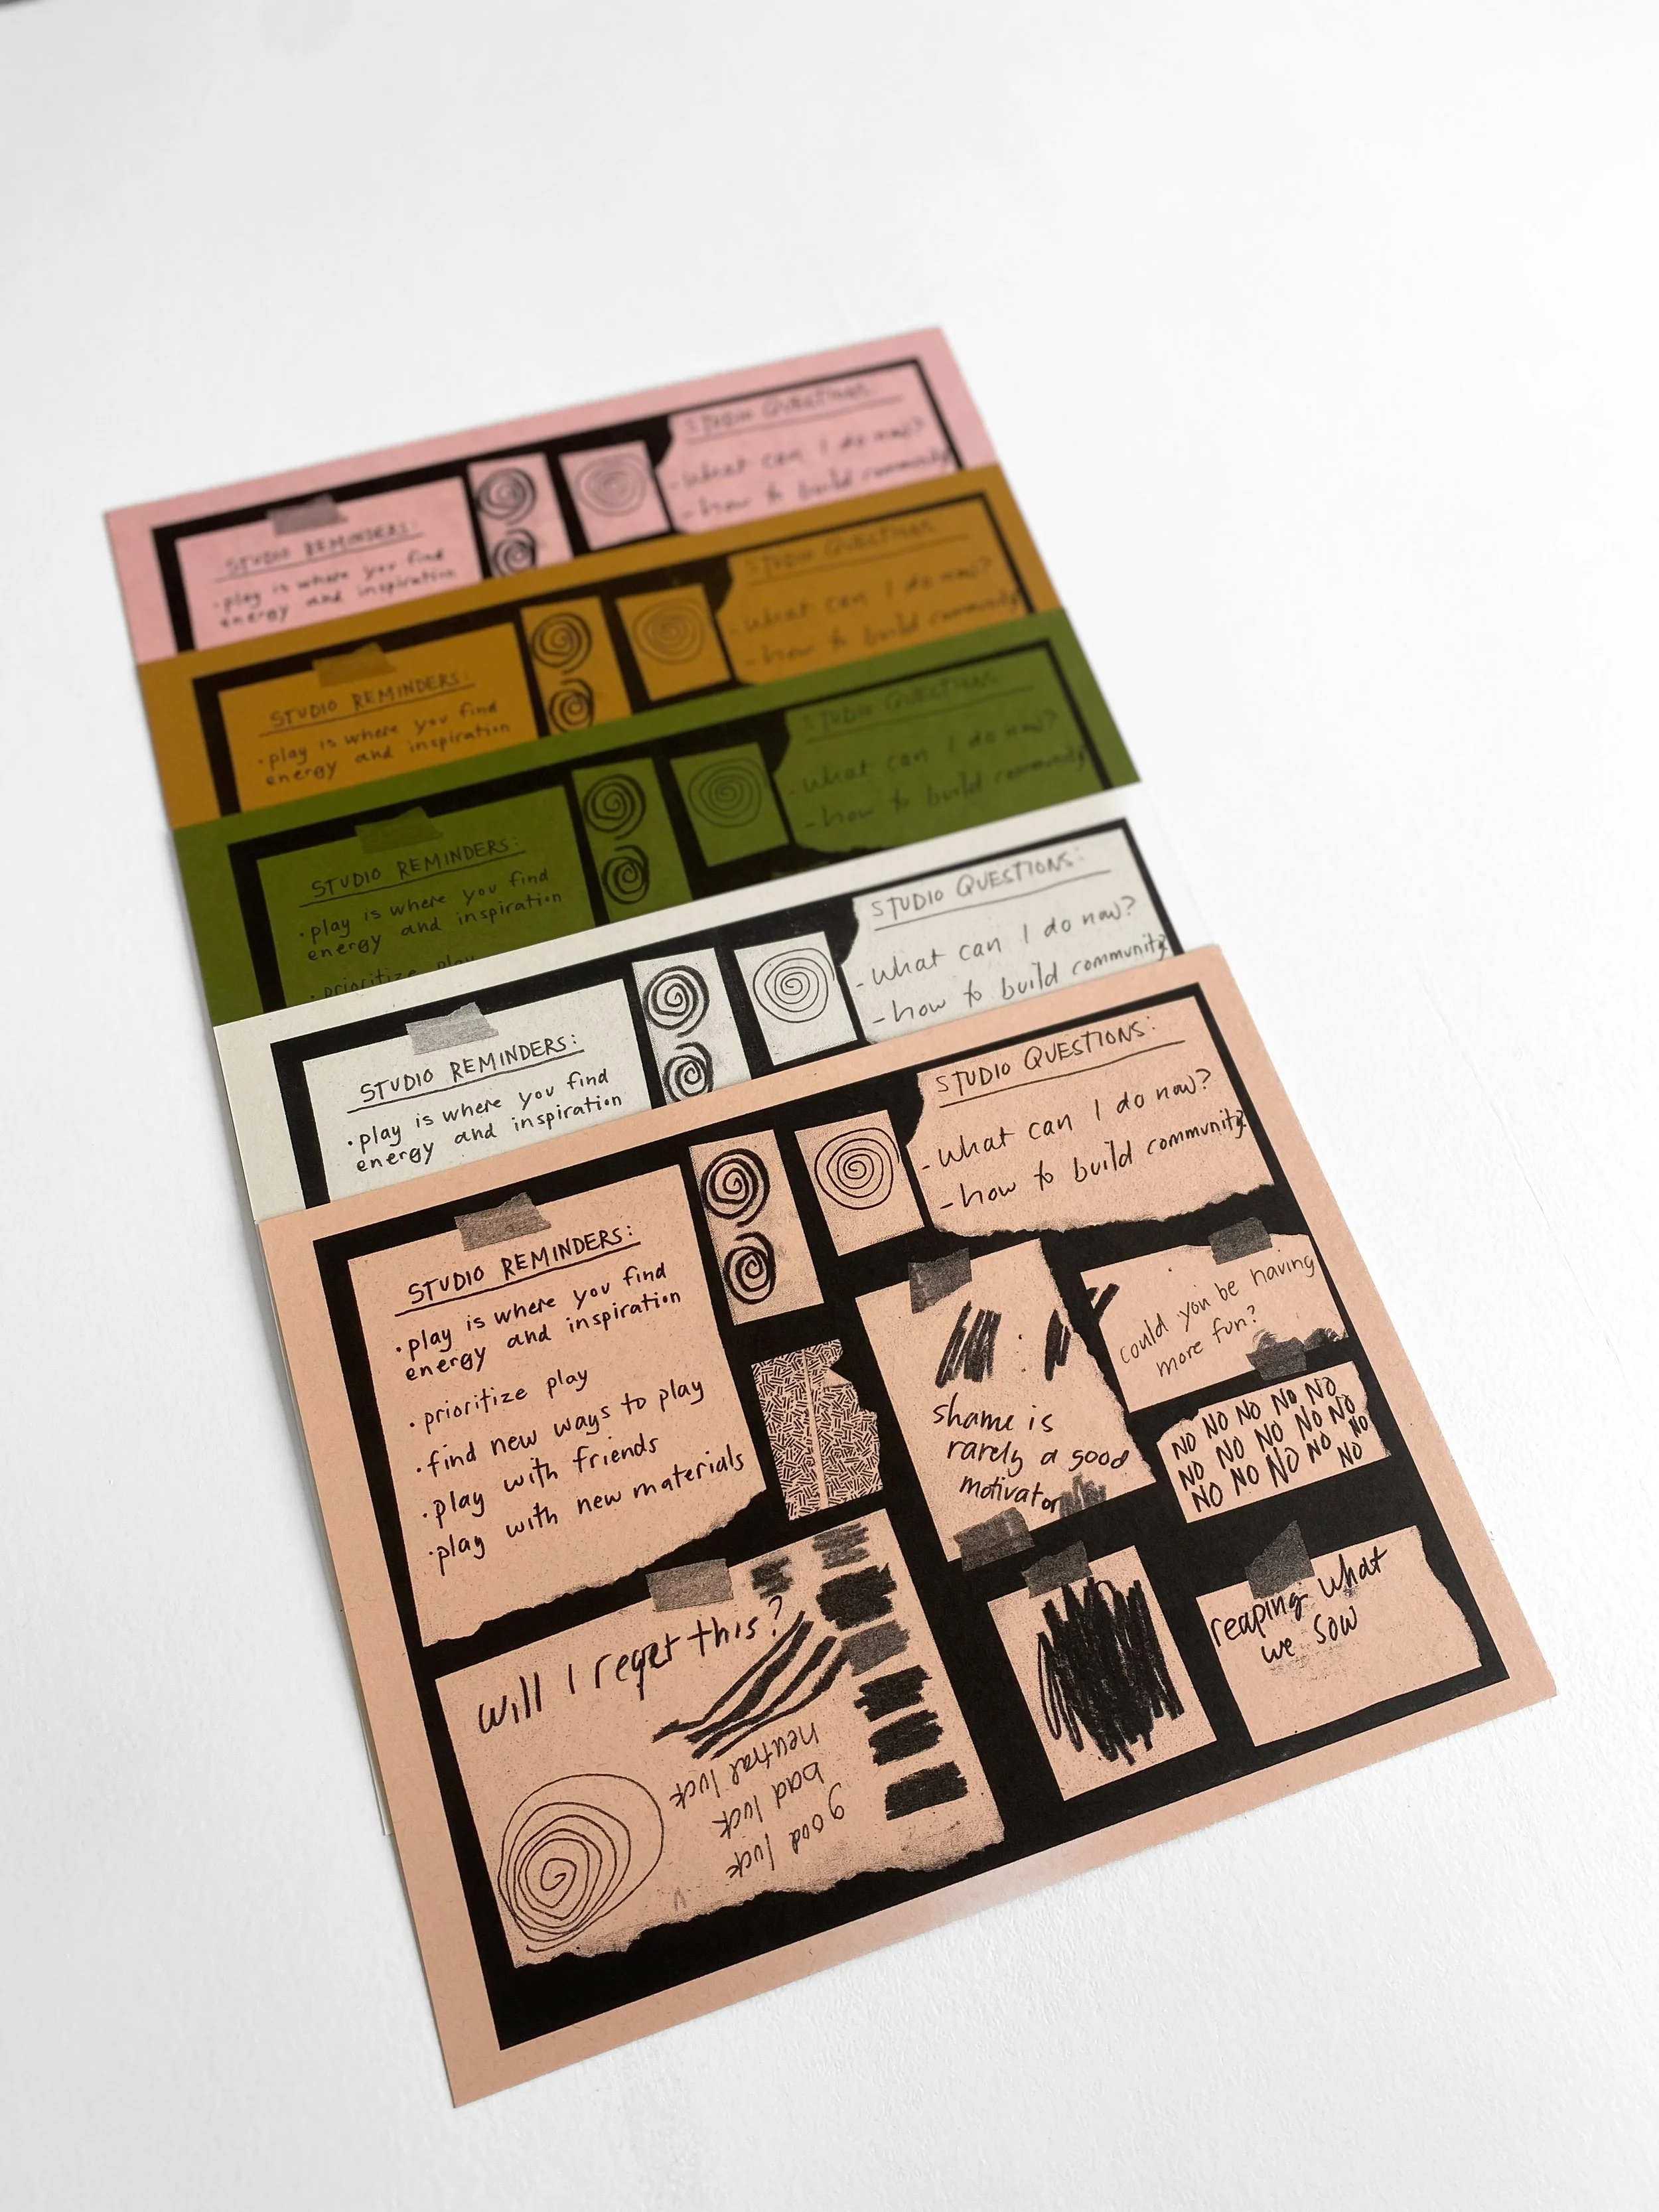 STUDIO QUESTIONS:
- what can I do now?
- how to build community?
STUDIO REMINDERS:
· play is where you find
energy and inspiration
STUDIO QUESTIONS:
- what can I do now?
- how to build community?
STUDIO REMINDERS:
· play is where you find
energy and inspiration
STUDIO QUESTIONS:
- what can I do now?
- how to build community?
STUDIO REMINDERS:
· play is where you find
energy and inspiration
· prioritize play
STUDIO QUESTIONS:
- what can I do now?
- how to build community?
STUDIO REMINDERS:
· play is where you find
energy and inspiration
STUDIO QUESTIONS:
- what can I do now?
- how to build community?
STUDIO REMINDERS:
· play is where you find
energy and inspiration
· prioritize play
· find new ways to play
· play with friends
· play with new materials
could you be having
more fun?
shame is
rarely a good
motivator
NO NO NO NO NO
NO NO NO NO NO
NO NO NO NO NO
NO
will I regret this?
good luck
bad luck
neutral luck
reaping what
we sow